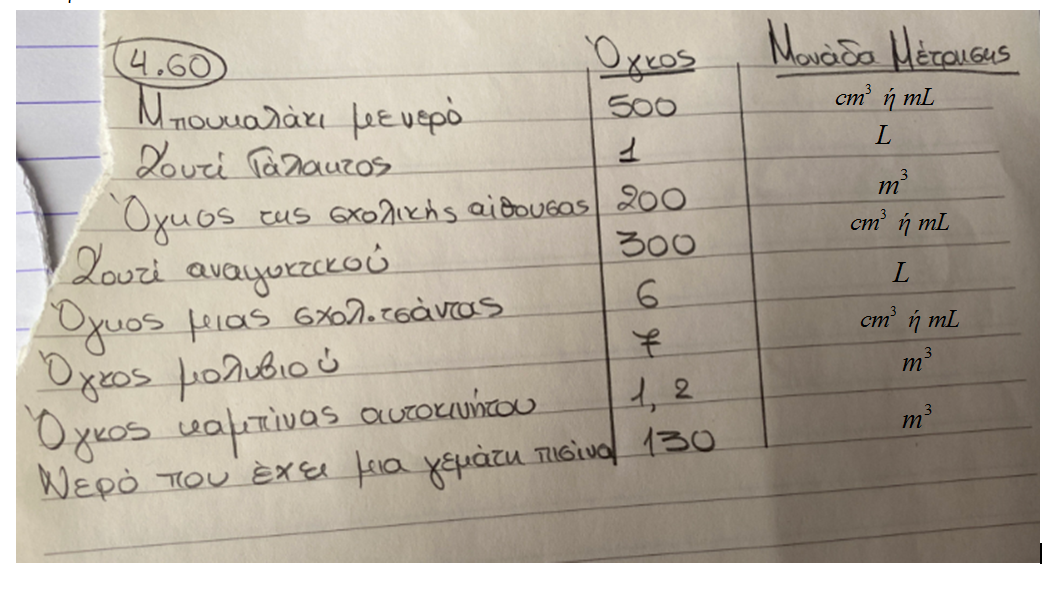 4.60 Όγκος Μονάδα Μέτρησης
Μπουκαλάκι με νερό 500 cm³ ή mL
Κουτί Γάλακτος 1 L
Όγκος της σχολικής αίθουσας 200 m³
Κουτί αναψυκτικού 300 cm³ ή mL
Όγκος μιας σχολ. τσάντας 6 L
Όγκος μολυβιού 7 cm³ ή mL
Όγκος καμπίνας αυτοκινήτου 1,2 m³
Νερό που έχει μια γεμάτη πισίνα 130 m³